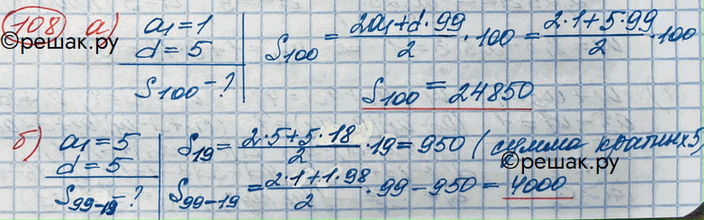 108 а) a₁ = 1
d = 5
S₁₀₀ - ?
S₁₀₀ = (2a₁ + d · 99)/2 · 100 = (2 · 1 + 5 · 99)/2 · 100
S₁₀₀ = 24850
©решак.ру
©reшак.ру
б) a₁ = 5
d = 5
S₉₉₋₁₉ - ?
S₁₉ = (2 · 5 + 5 · 18)/2 · 19 = 950 (сумма кратных 5)
S₉₉₋₁₉ = (2 · 1 + 1 · 98)/2 · 99 - 950 = 4000
©reшак.ру
©reшак.ру